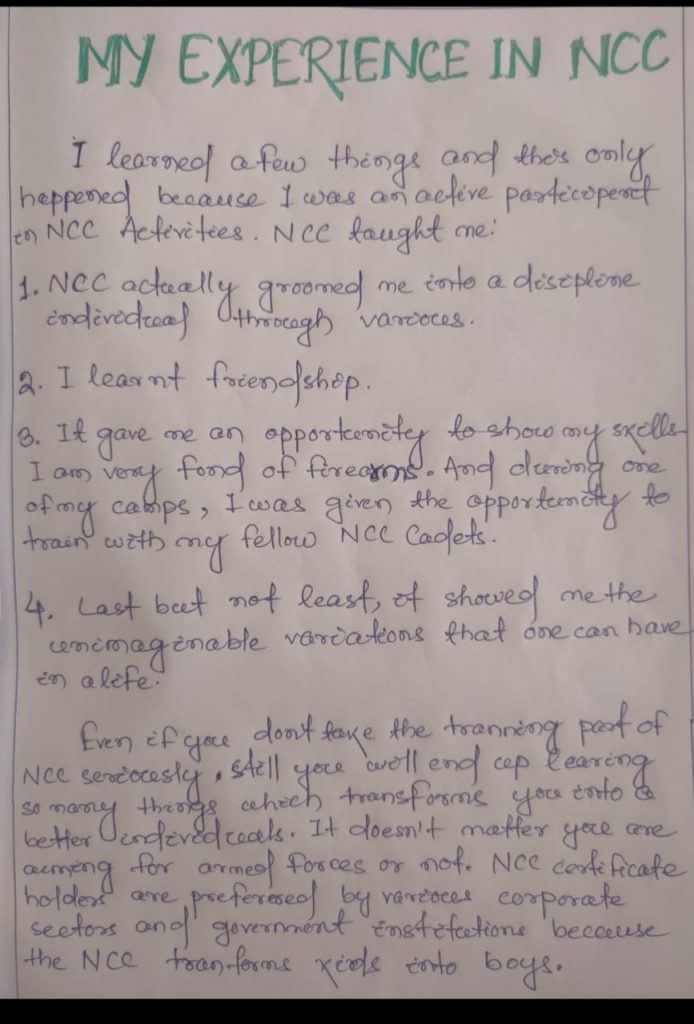 MY EXPERIENCE IN NCC
I learned a few things and this only
heppened because I was an active particepent
in NCC Activities. NCC taught me:
1. NCC actually groomed me into a discipline
individual through varioces.
2. I learnt friendship.
3. It gave me an opportunity to show my skills
I am very fond of firearms. And during one
of my camps, I was given the opportunity to
train with my fellow NCC Cadets.
4. Last but not least, it showed me the
unimaginable variations that one can have
in a life.
Even if you don't take the tranning part of
NCC seriously, still you will end up learing
so many things which transforms you into a
better individuals. It doesn't matter you are
aiming for armed forces or not. NCC certificate
holders are prefereed by various corporate
sectors and government institutions because
the NCC tranforms kids into boys.